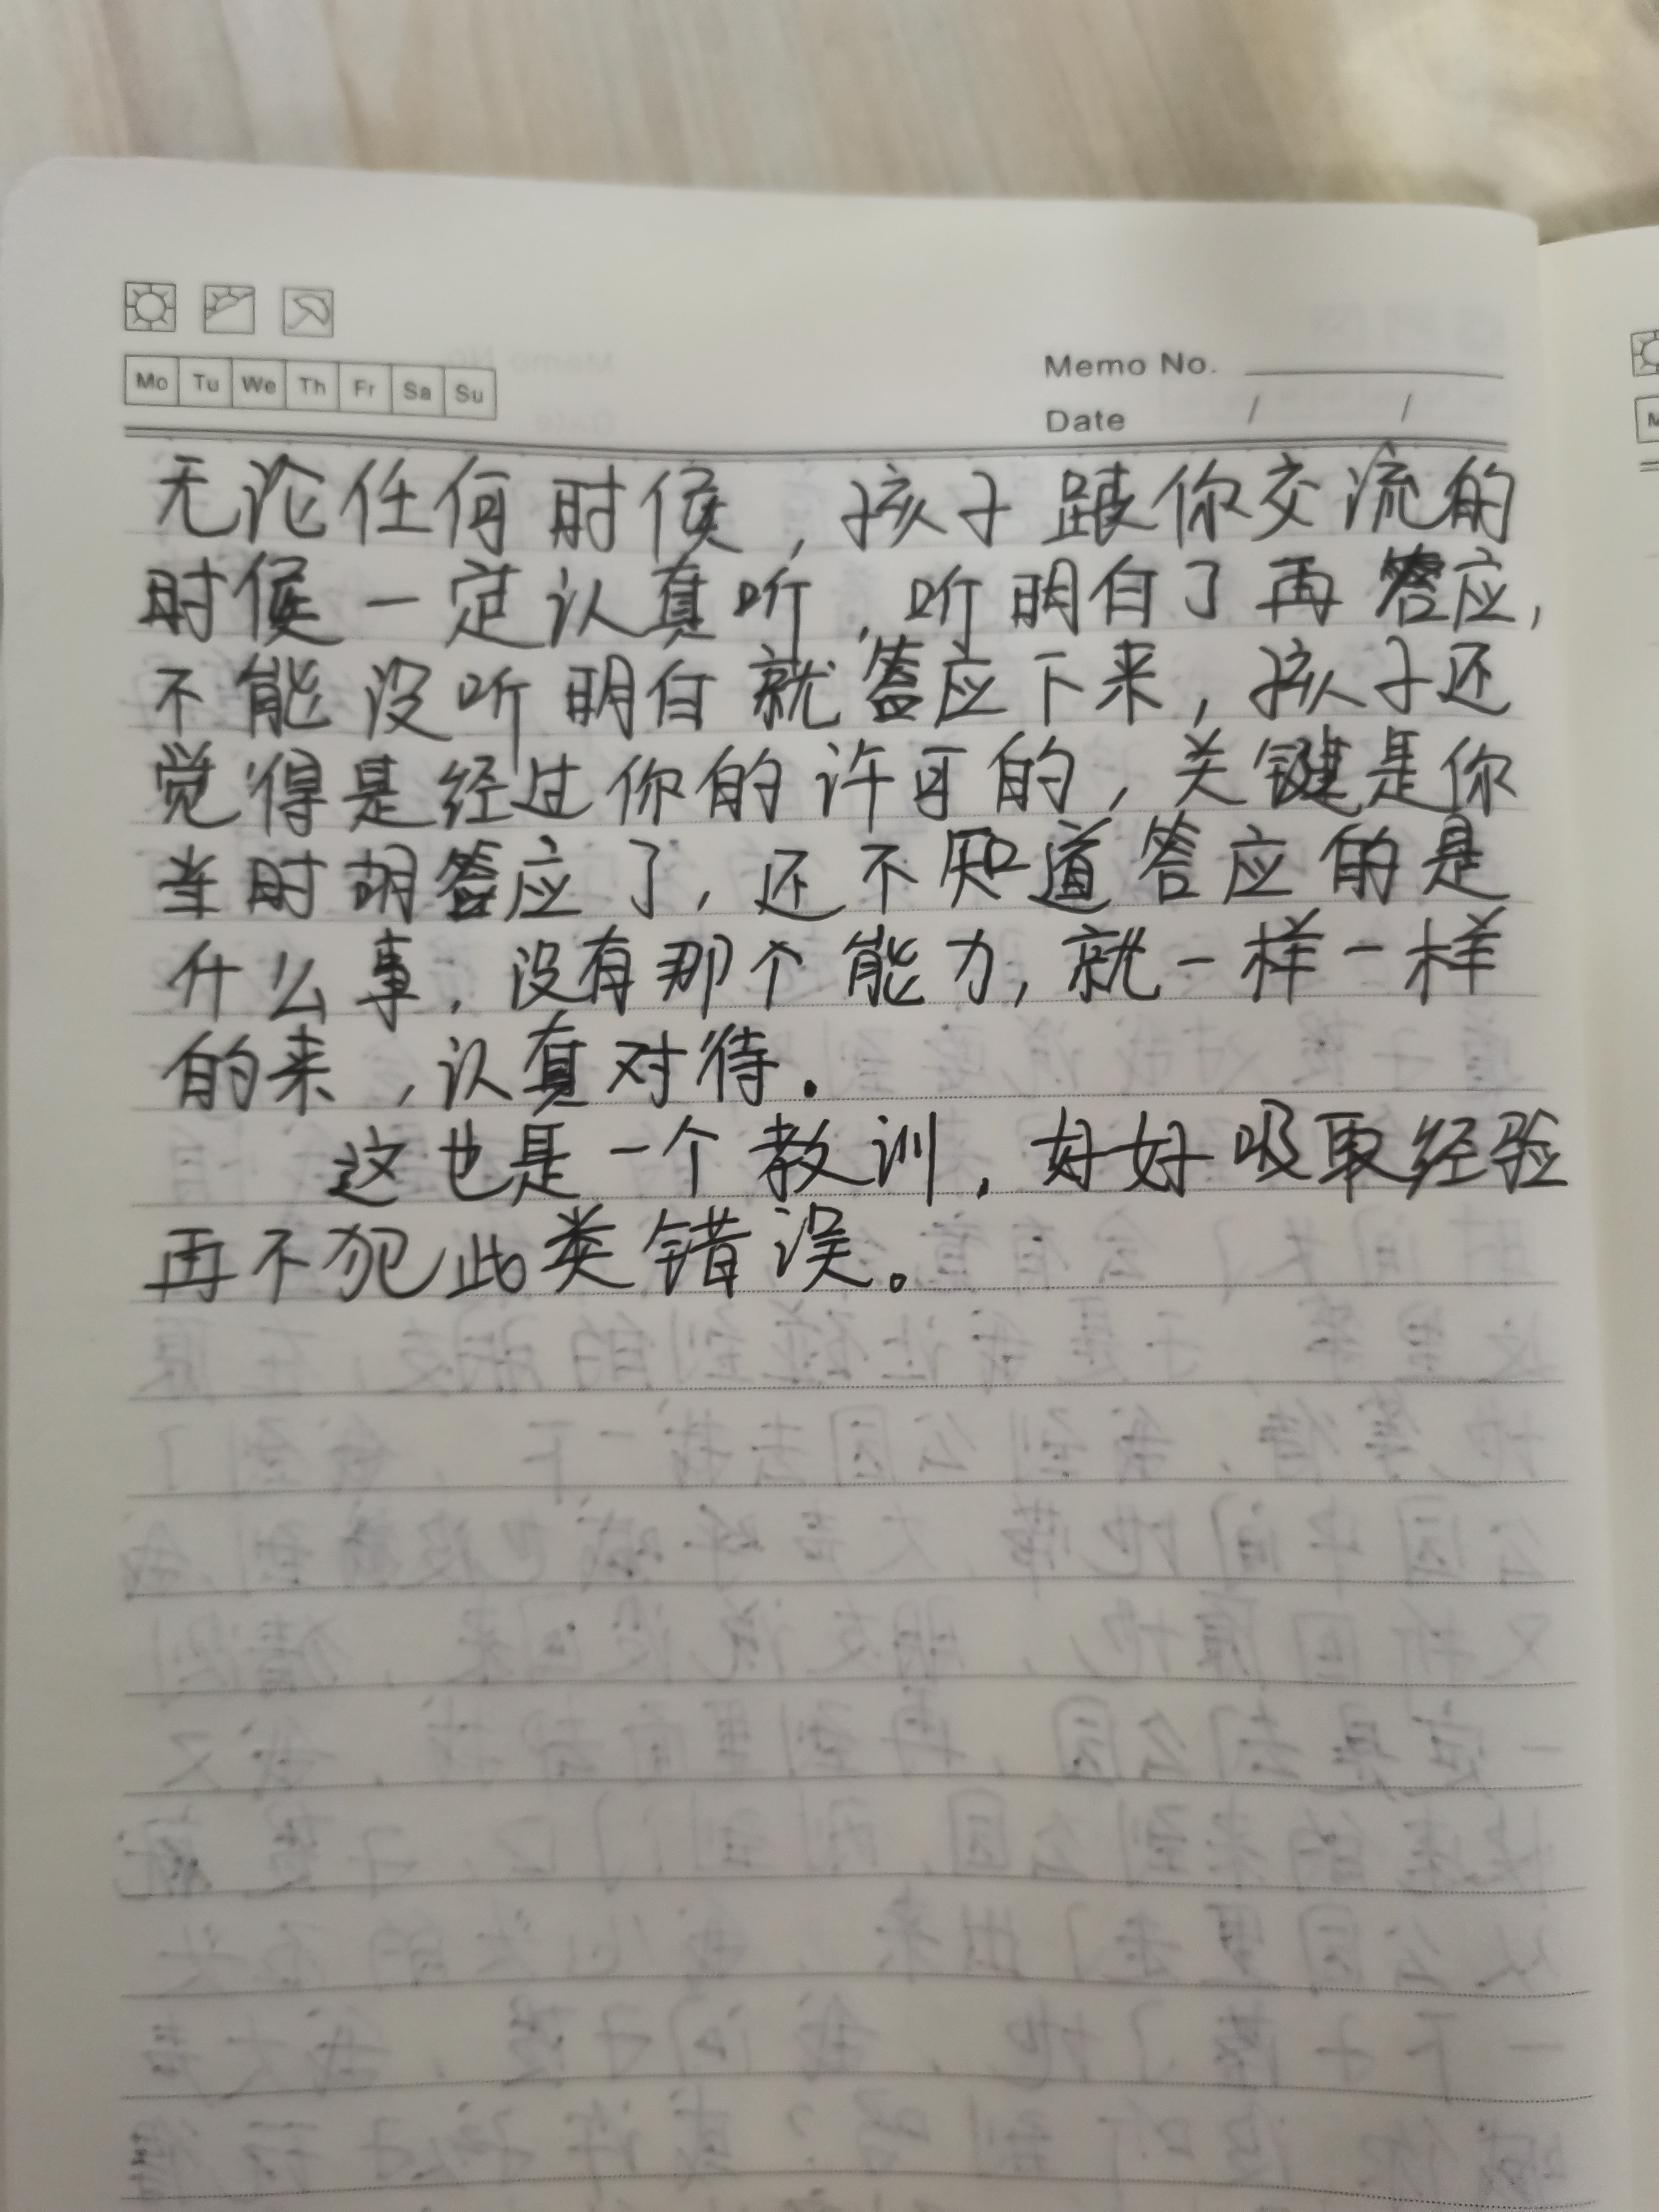 Mo Tu We Th Fr Sa Su
Memo No.
Date / /
无论任何时候，孩子跟你交流的
时候一定认真听，听明白了再答应，
不能没听明白就答应下来，孩子还
觉得是经过你的许可的，关键是你
当时胡答应了，还不知道答应的是
什么事，没有那个能力，就一样一样
的来，认真对待.
这也是一个教训，好好吸取经验
再不犯此类错误。